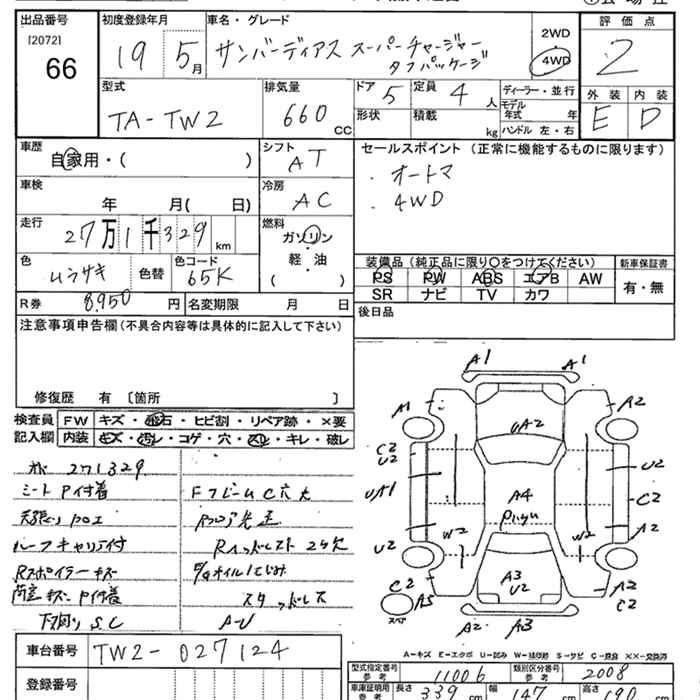 出品番号 初度登録年月 車名・グレード 評価点
[2072] 66 19年5月 サンバーディアス スーパーチャージャー タフパッケージ
2WD
4WD
2
型式 排気量 ドア 5 定員 4人 ディーラー・並行 外装 内装
TA-TW2 660cc 形状 積載 kg モデル年式 年 E D
ハンドル 左・右
車歴 自家用・( ) シフト AT セールスポイント (正常に機能するものに限ります)
・オートマ
・4WD
車検 年 月( 日) 冷房 AC
走行 27万1千329km 燃料 ガソリン
軽・油
( )
色 ムラサキ 色替 色コード 65K
装備品 (純正品に限り○をつけてください) 新車保証書
PS PW ABS エアB AW 有・無
SR ナビ TV カワ
R券 8,950円 名変期限 月 日 後日品
注意事項申告欄(不具合内容等は具体的に記入して下さい)
修復歴 有 〔箇所 〕
検査員 FW キズ・飛石・ヒビ割・リペア跡・×要
記入欄 内装 キズ・汚レ・コゲ・穴・スレ・キレ・破レ
271329
シートP付着 FフレームC穴大
ルーフキャリア付
Rスポイラーキズ
スタッドレス
下廻りS.C A-U
A1 A1
A1 A2
UA2
C2
U2 U2
UA1 C2
A4
A2
W2 W2
U2
A3
U2
C2 A2
A5 C2
スペア
A2 A3
A-キズ E-エクボ U-凹み W-補修跡 S-サビ C-腐食 ××-交換済
車台番号 TW2-027124
登録番号
型式指定番号 参考 11006 類別区分番号 参考 2008
車庫証明用 参考 長さ 339cm 幅 147cm 高さ 190cm